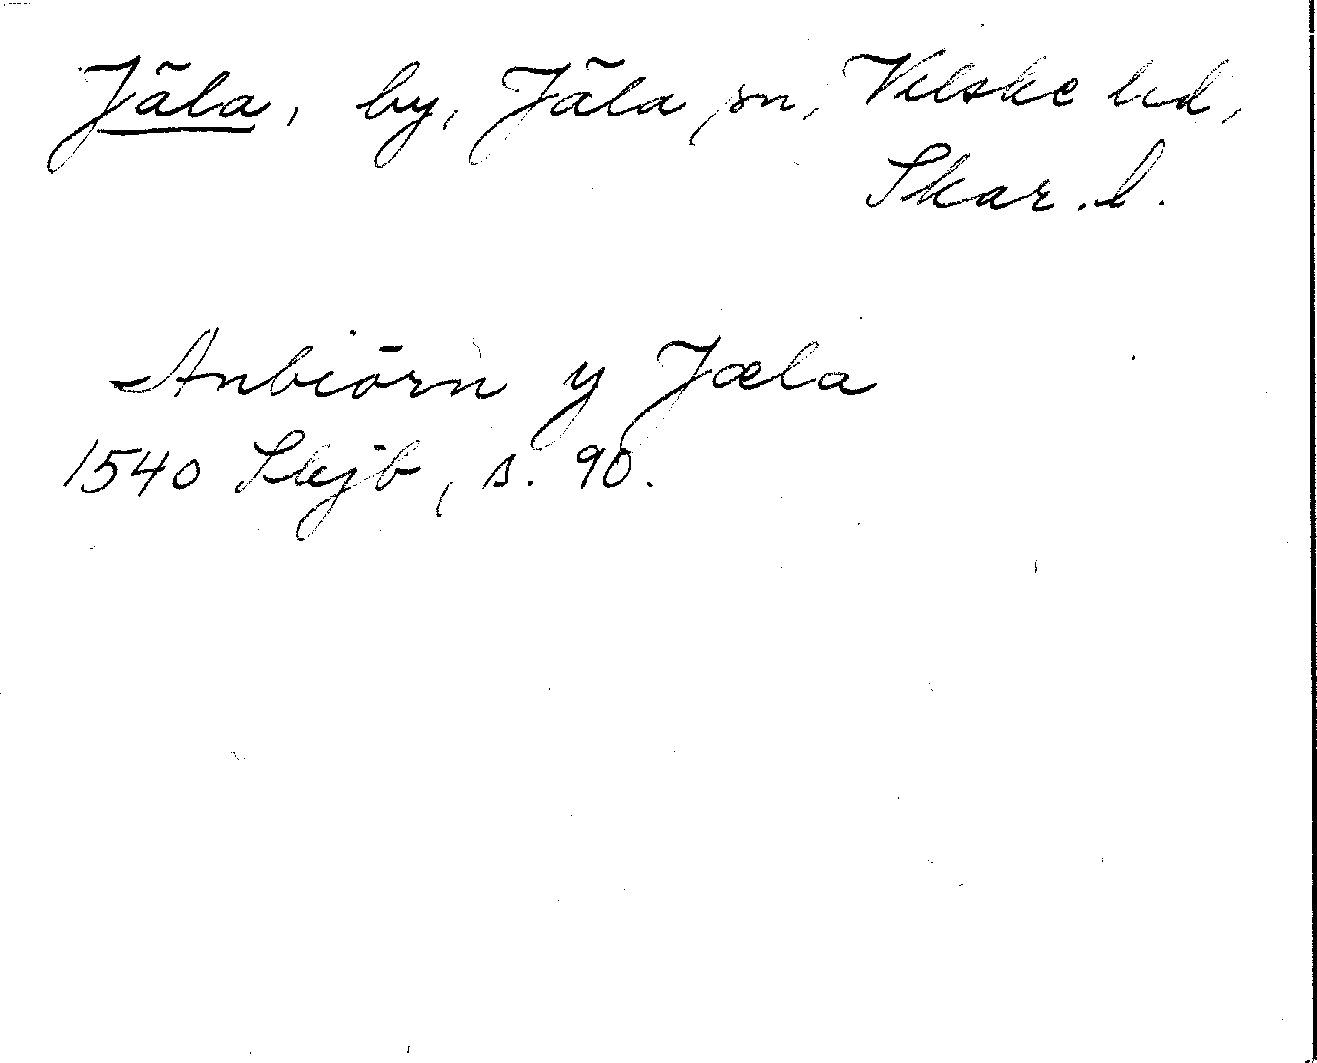 Jäla, by, Jäla sn, Vilske hd,
Skar. l.
Anbiörn y Jæla
1540 Skjb, s. 90.